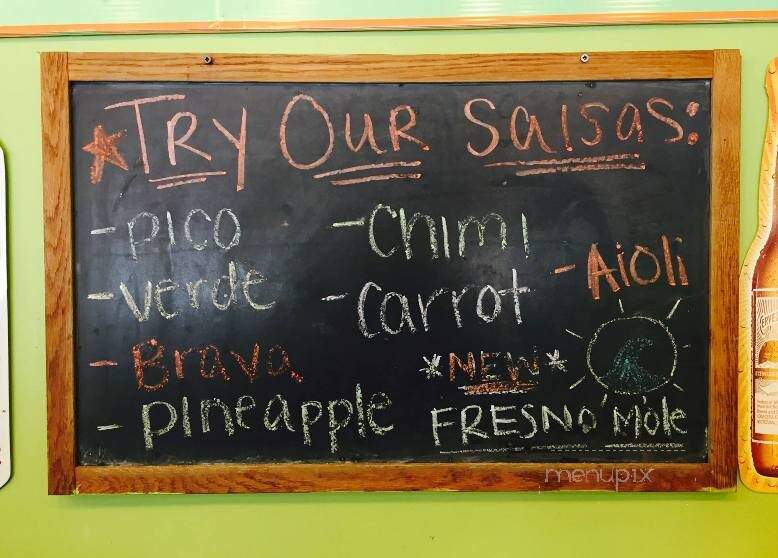 Try Our Salsas:
- Pico
- Verde
- Brava
- Pineapple
- Chimi
- Carrot
- Aioli
*NEW*
FRESNO Mole
menupix